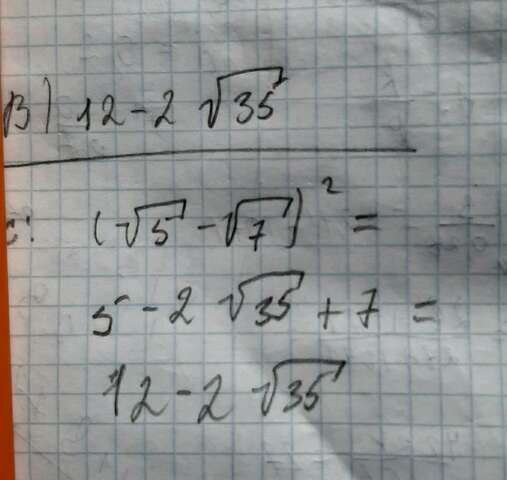 B) 12 - 2 √35
c: (√5 - √7)² =
5 - 2 √35 + 7 =
12 - 2 √35